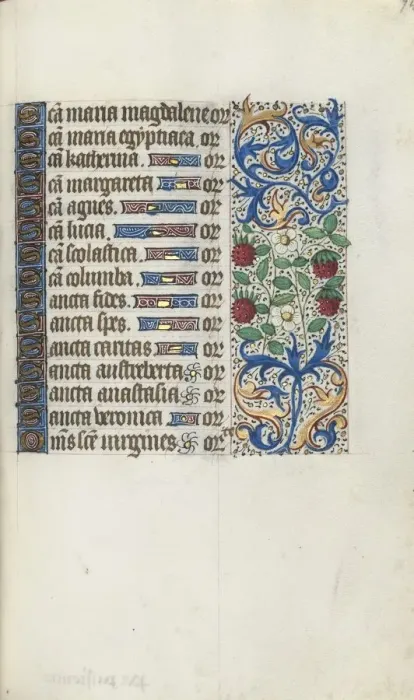 Sca maria magdalene or
Sca maria egyptiaca. or
Sca katherina. or
Sca margareta or
Sca agnes. or
Sca lucia. or
Sca scolastica. or
Sca columba. or
Sancta fides. or
Sancta spes. or
Sancta caritas or
Sancta austreberta or
Sancta anastasia or
Sancta veronica or
Oms sce virgines or